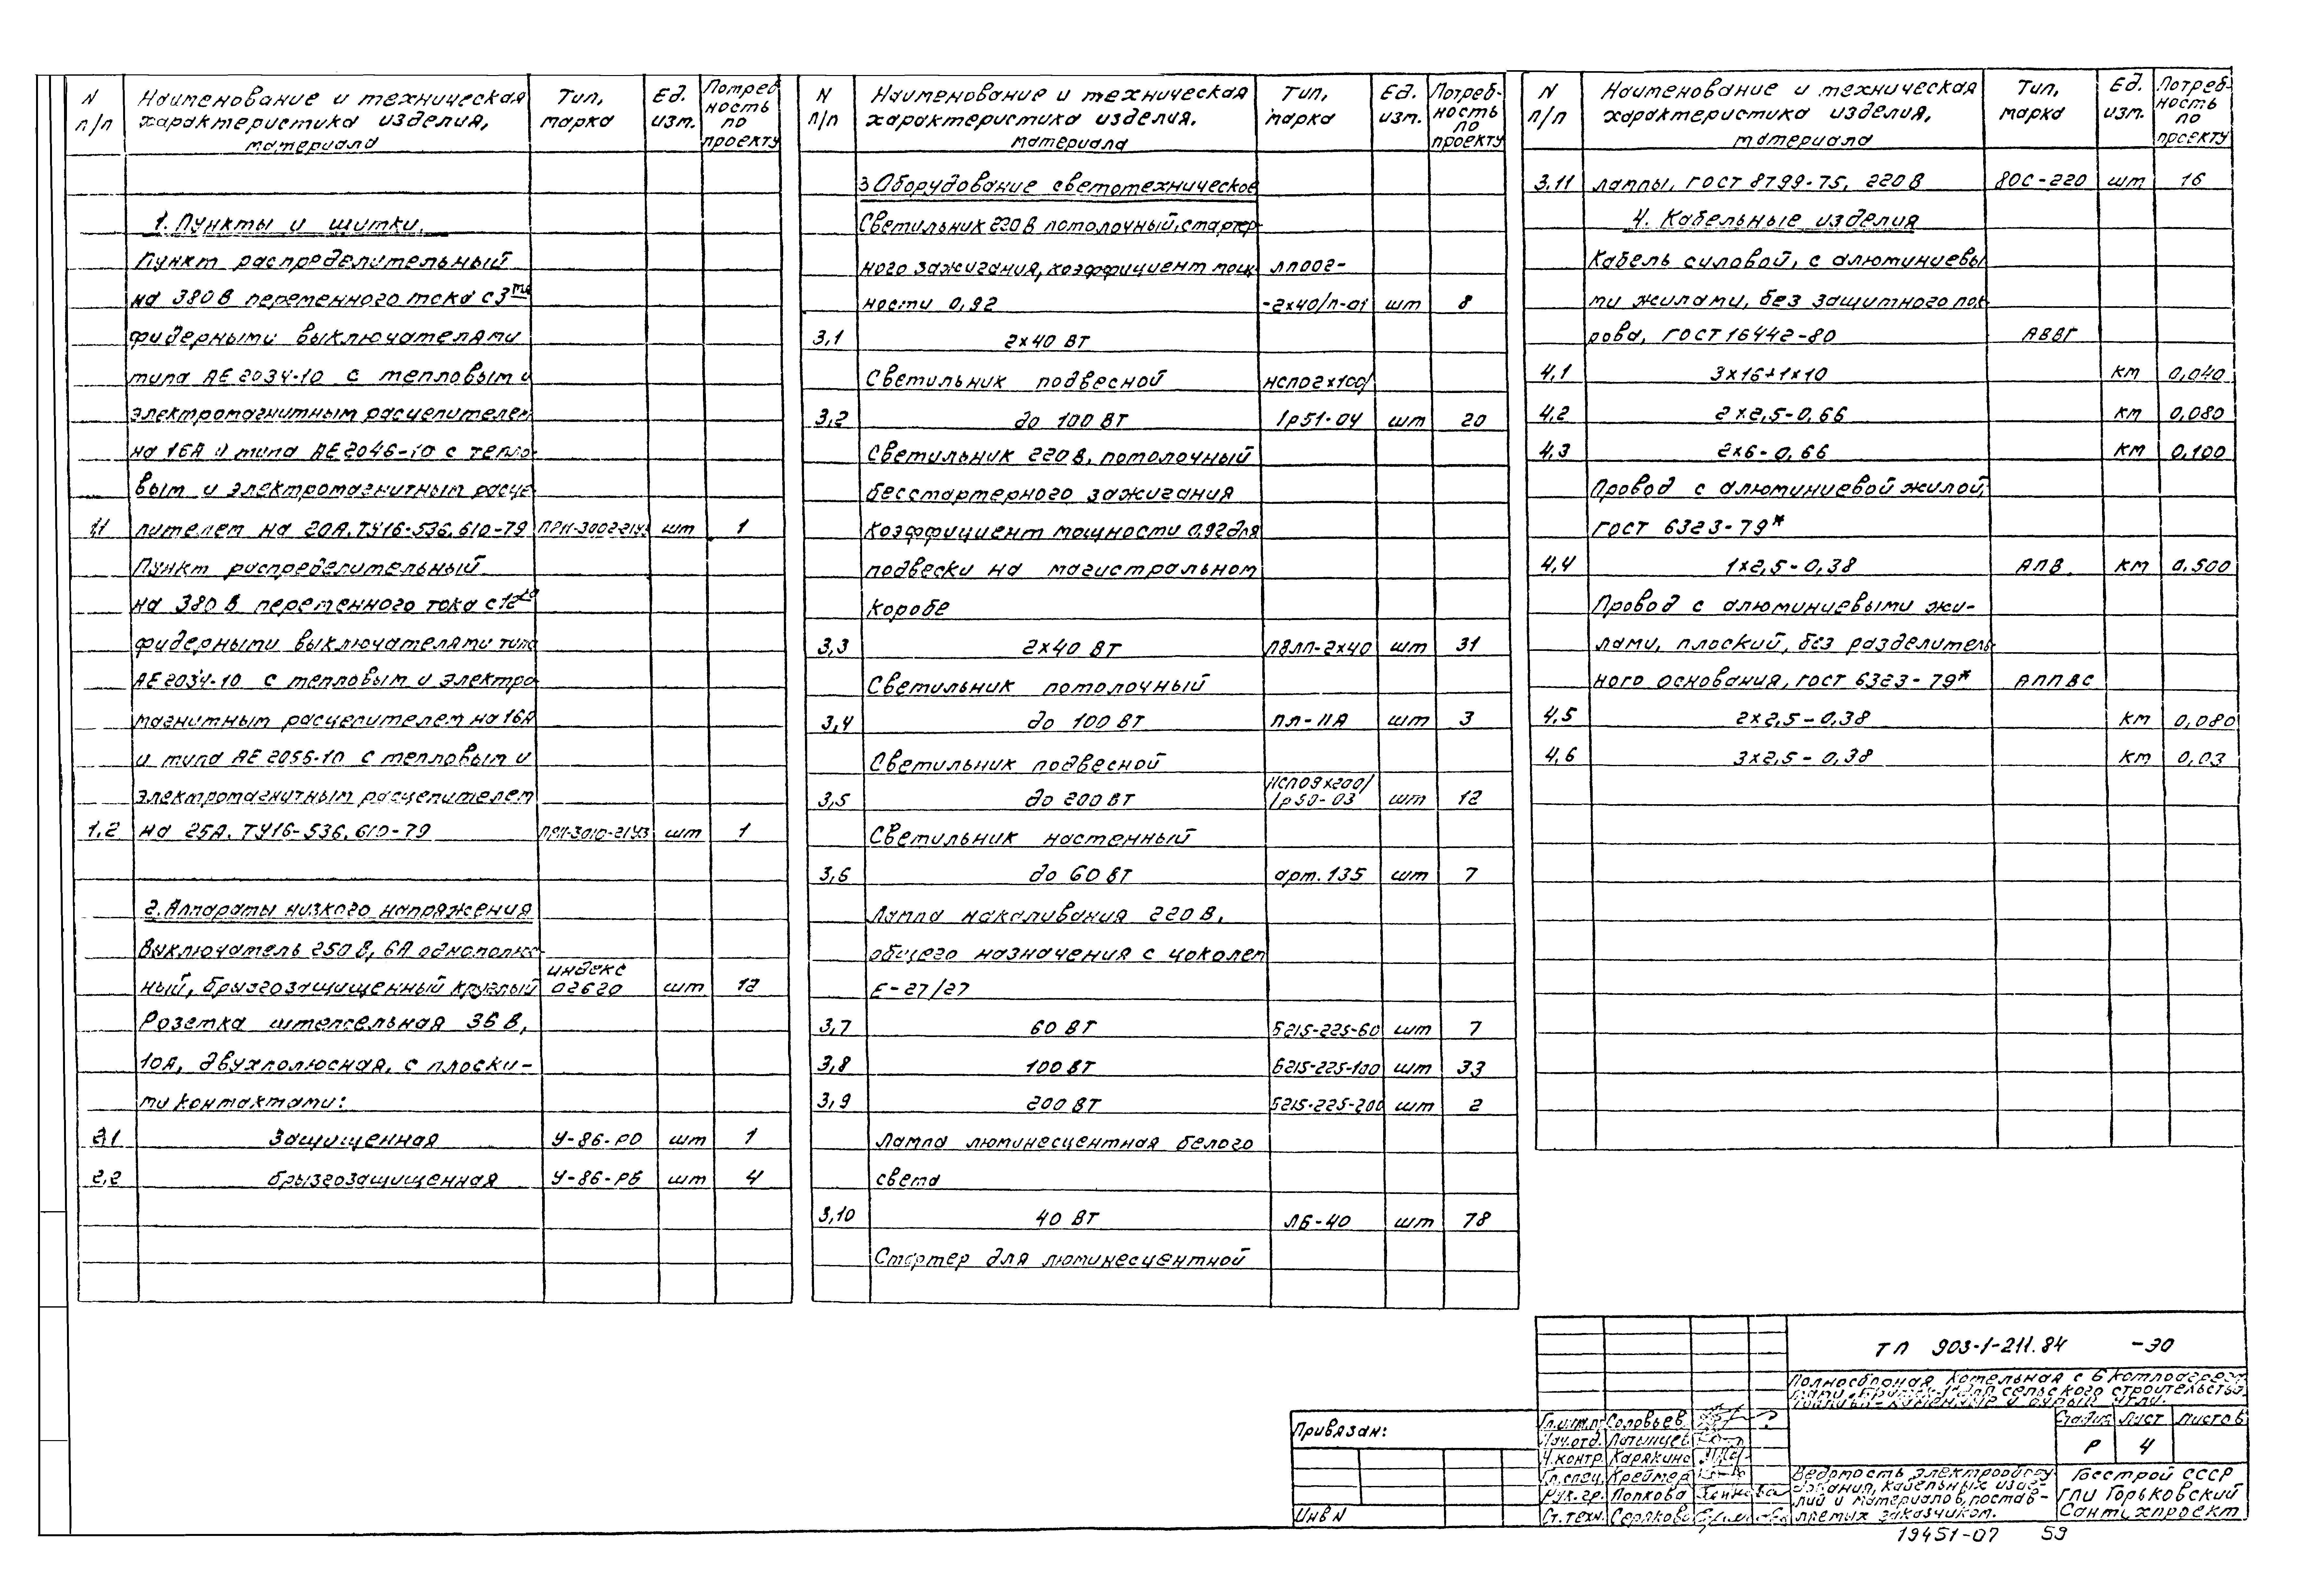 N п/п Наименование и техническая характеристика изделия, материала Тип, марка Ед. изм. Потребность по проекту
1. Пункты и щитки.
Пункт распределительный
на 380 В переменного тока с 3мя
фидерными выключателями
типа АЕ 2034-10 с тепловым и
электромагнитным расцепителем
на 16А и типа АЕ 2046-10 с тепло-
вым и электромагнитным расце-
1.1 пителем на 20А. ТУ16-536.610-79 шт 1
Пункт распределительный
на 380 В переменного тока с 12ю
фидерными выключателями типа
АЕ 2034-10 с тепловым и электро
магнитным расцепителем на 16А
и типа АЕ 2056-10 с тепловым и
электромагнитным расцепителем
1,2 на 25А. ТУ16-536.610-79 шт 1
2. Аппараты низкого напряжения
Выключатель 250 В, 6А однополюс-
ный, брызгозащищенный круглый индекс 02620 шт 12
Розетка штепсельная 36 В,
10А, двухполюсная, с плоски-
ми контактами:
2.1 Защищенная У-86-РО шт 1
2,2 брызгозащищенная У-86-РБ шт 4
N п/п Наименование и техническая характеристика изделия, материала Тип, марка Ед. изм. Потребность по проекту
3 Оборудование светотехническое
Светильник 220 В потолочный, стартер-
ного зажигания, коэффициент мощ- ЛП002-
ности 0,92 -2х40/п-01 шт 8
3,1 2х40 ВТ
Светильник подвесной НСП02х100/
3,2 до 100 ВТ 1р51-04 шт 20
Светильник 220 В, потолочный
бесстартерного зажигания
коэффициент мощности 0,92 для
подвески на магистральном
коробе
3,3 2х40 ВТ ПВЛП-2х40 шт 31
Светильник потолочный
3,4 до 100 ВТ ПЛ-11А шт 3
Светильник подвесной
3,5 до 200 ВТ НСП09х200/ 1р50-03 шт 12
Светильник настенный
3,6 до 60 ВТ арт. 135 шт 7
Лампа накаливания 220 В,
общего назначения с цоколем
Е-27/27
3,7 60 ВТ Б215-225-60 шт 7
3,8 100 ВТ Б215-225-100 шт 33
3,9 200 ВТ Б215-225-200 шт 2
Лампа люминесцентная белого
света
3,10 40 ВТ ЛБ-40 шт 78
Стартер для люминесцентной
N п/п Наименование и техническая характеристика изделия, материала Тип, марка Ед. изм. Потребность по проекту
3.11 лампы, ГОСТ 8799-75, 220 В 80С-220 шт 16
4. Кабельные изделия
Кабель силовой, с алюминиевы
ми жилами, без защитного пок-
рова, ГОСТ 16442-80 АВВГ
4,1 3х16+1х10 км 0,040
4,2 2х2,5-0,66 км 0,080
4,3 2х6-0,66 км 0,100
Провод с алюминиевой жилой,
ГОСТ 6323-79*
4,4 1х2,5-0,38 АПВ. км 0,500
Провод с алюминиевыми жи-
лами, плоский, без разделитель-
ного основания, ГОСТ 6323-79* АППВС
4,5 2х2,5-0,38 км 0,080
4,6 3х2,5-0,38 км 0,03
ТП 903-1-211.84 -ЭО
Полносборная котельная с 6 котлоагрега
сельского строительства.
Привязан:
Инв N
Гл.инж.пр. Соловьев
Нач.отд. Латынцев
Н.контр. Карякина
Гл.спец. Креймер
Рук.гр. Попкова
Ст.техн. Серякова
Стадия Лист Листов
Р 4
Ведомость электрообору
дования, кабельных изде-
лий и материалов, постав-
ляемых заказчиком.
Госстрой СССР
ГПИ Горьковский
Сантехпроект
19451-07 59